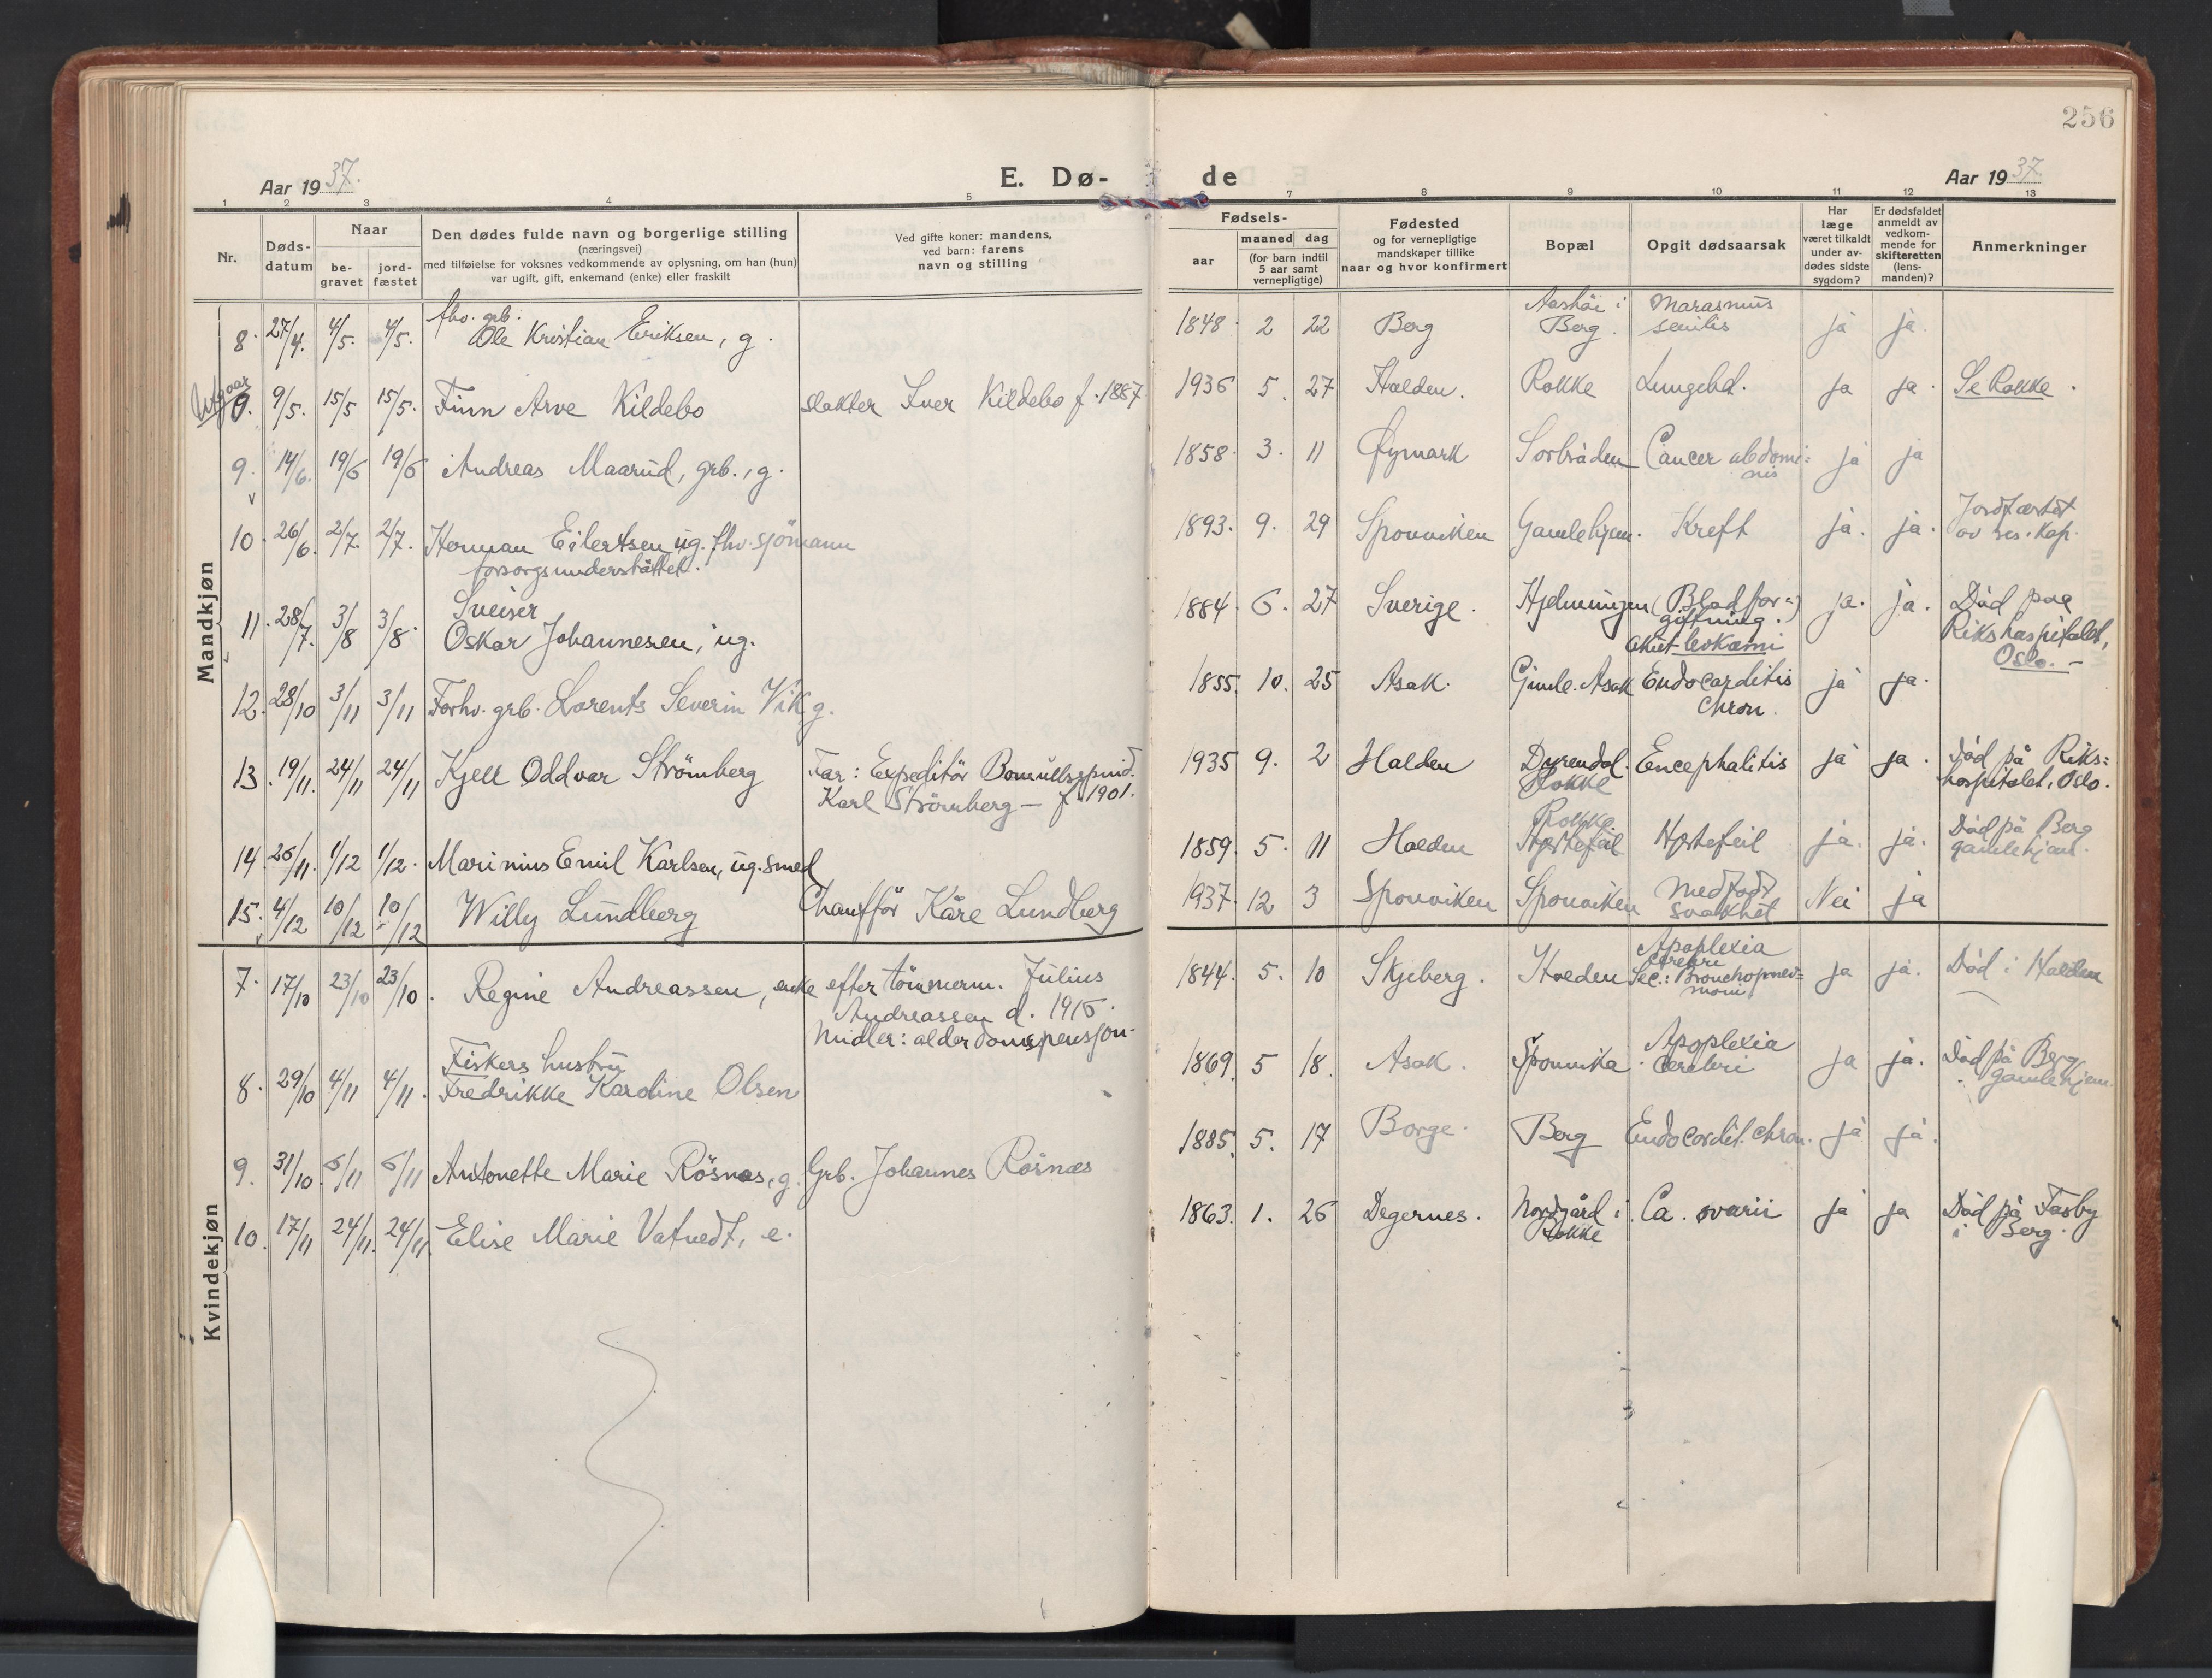 256
Aar 1937.
E. Dø-
de
Aar 1937.
1 2 3 4 5 6 7 8 9 10 11 12 13
Nr.
Døds-
datum
Naar
be-
gravet
jord-
fæstet
Den dødes fulde navn og borgerlige stilling
(næringsvei)
med tilføielse for voksnes vedkommende av oplysning, om han (hun)
var ugift, gift, enkemand (enke) eller fraskilt
Ved gifte koner: mandens,
ved barn: farens
navn og stilling
Fødsels-
aar
maaned dag
(for barn indtil
5 aar samt
vernepligtige)
Fødested
og for vernepligtige
mandskaper tillike
naar og hvor konfirmert
Bopæl
Opgit dødsaarsak
Har
læge
været tilkaldt
under av-
dødes sidste
sygdom?
Er dødsfaldet
anmeldt av
vedkom-
mende for
skifteretten
(lens-
manden)?
Anmerkninger
Mandkjøn
8. 27/4. 4/5. 4/5. fhv. grb. Ole Kristian Eriksen, g. 1848. 2 22 Berg Aashöi i Berg. Marasmus senilis ja ja.
Utgaar 9. 9/5. 15/5 15/5. Finn Arve Kildebo slakter Iver Kildebo f. 1887 1936 5. 27 Halden. Rokke Lungebet. ja ja. Se Rokke.
9. 14/6. 19/6 19/6 Andreas Maarud, grb., g. 1858. 3. 11 Øymark Sorbråden Cancer abdomi: nis ja ja
10. 26/6. 2/7. 2/7. Herman Eilertsen ug. fhv. sjömann
forsorgsunderstöttet. 1893. 9. 29 Sponviken Gamlehjem. Kreft ja. ja. Jordfæstet
av res. kap.
11. 28/7. 3/8 3/8. Sveiser
Oskar Johannesen, ug. 1884. 6. 27 Sverige. Hjelmungen (Blodfor=)
giftning.
akut leokæmi ja. ja. Död paa
Rikshospitalet,
Oslo.-
12. 28/10 3/11 3/11 Forhv. grb. Lorents Severin Vik g. 1855. 10. 25 Asak. Gimle. Asak Endocarditis
Chron. ja ja.
13. 19/11. 24/11 24/11 Kjell Oddvar Strömberg Far: Expeditör Bomullsspind.
Karl Strömberg — f. 1901. 1935 9. 2 Halden Dyrendal.
Rokke Encephalitis ja ja. Död på Riks:
hospitalet, Oslo.
14. 26/11. 1/12 1/12. Marinius Emil Karlsen, ug. smed 1859. 5. 11 Halden Rokke
Hjertefeil Hjertefeil ja. ja. Död på Berg
gamlehjem.
15. 4/12 10/12 10/12 Willy Lundberg Chaufför Kåre Lundberg 1937. 12 3 Sponviken Sponviken Medfödt
svakhet Nei ja
Kvindekjøn
7. 17/10 23/10 23/10. Regine Andreassen, enke efter tömmerm. Julius
Andreassen d. 1915.
Midler: alderdomspensjon. 1844. 5. 10 Skjeberg. Halden Apoplexia
cerebri
Sec.: Bronchopnev=
moni ja ja. Död i Halden
8. 29/10 4/11 4/11. Fiskers hustru
Fredrikke Karoline Olsen 1869. 5 18. Asak. Sponvika. Apoplexia
cerebri ja ja. Död på Berg
gamlehjem.
9. 31/10. 5/11 5/11 Antonette Marie Rösnæs, g. Grb. Johannes Rösnæs 1885. 5. 17 Borge. Berg Endocardit. chron. ja ja.
10. 17/11 24/11. 24/11. Elise Marie Vatvedt, e. 1863. 1. 26 Degernes. Nordgård i
Rokke Ca. ovarii ja ja Död på Fasby
i Berg.